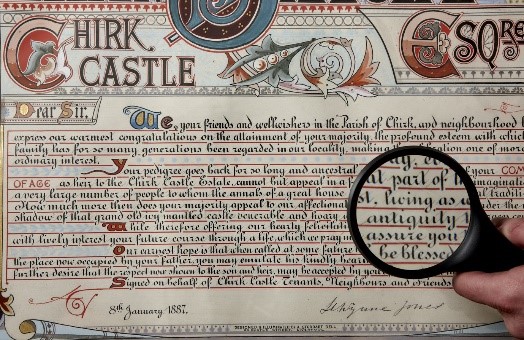 CHIRK CASTLE
ESQRE
Dear Sir,
We, your friends and wellwishers in the Parish of Chirk, and neighbourhood
express our warmest congratulations on the attainment of your majority, the profound esteem with which
family has for so many generations been regarded in our locality, making the celebration one of more
ordinary interest.
Your pedigree goes back for so long and ancestral your COM
OF AGE as heir to the Chirk Castle Estate, cannot but appeal in a imagina
a very large number of people to whom the annals of a great house
much more then does your majority appeal to our affection under the
shadow of that grand old ivy mantled castle venerable and hoary
part of
st. living as
antiquity
assure you
be blesse
While therefore offering our hearty felicita
with lively interest your future course through life, which we pray
Our earnest hope is that when called at some future
the place now occupied by your father, you may emulate his kindly
further desire that the respect now shown to the son and heir, may be accepted by you
Signed on behalf of Chirk Castle Tenants, Neighbours and Friends
8th January 1887.
Wynne Jones